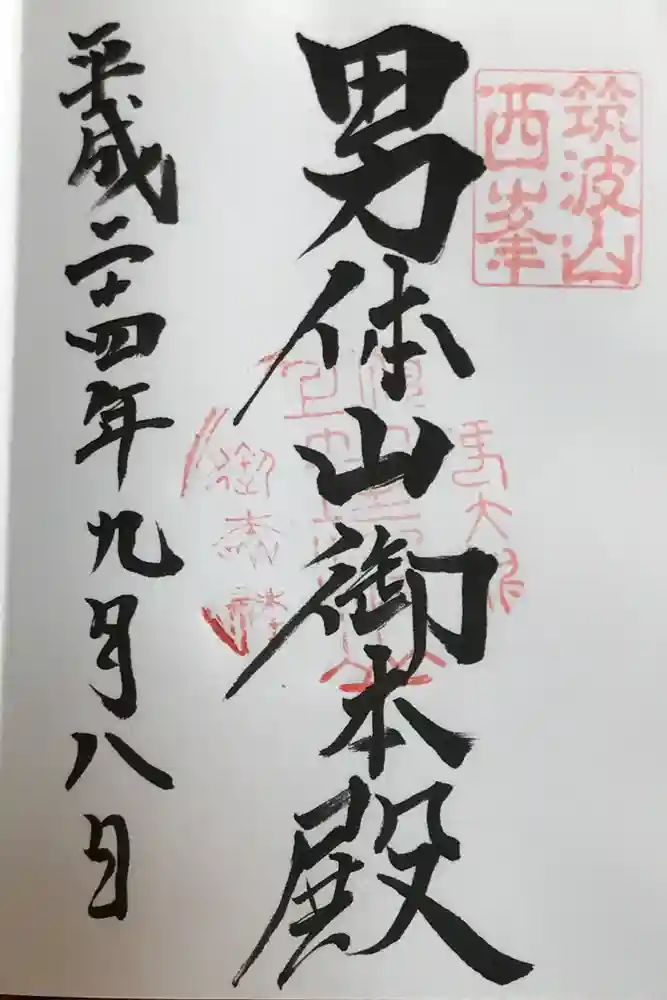 筑波山
西峯
男体山御本殿
平成二十四年九月八日